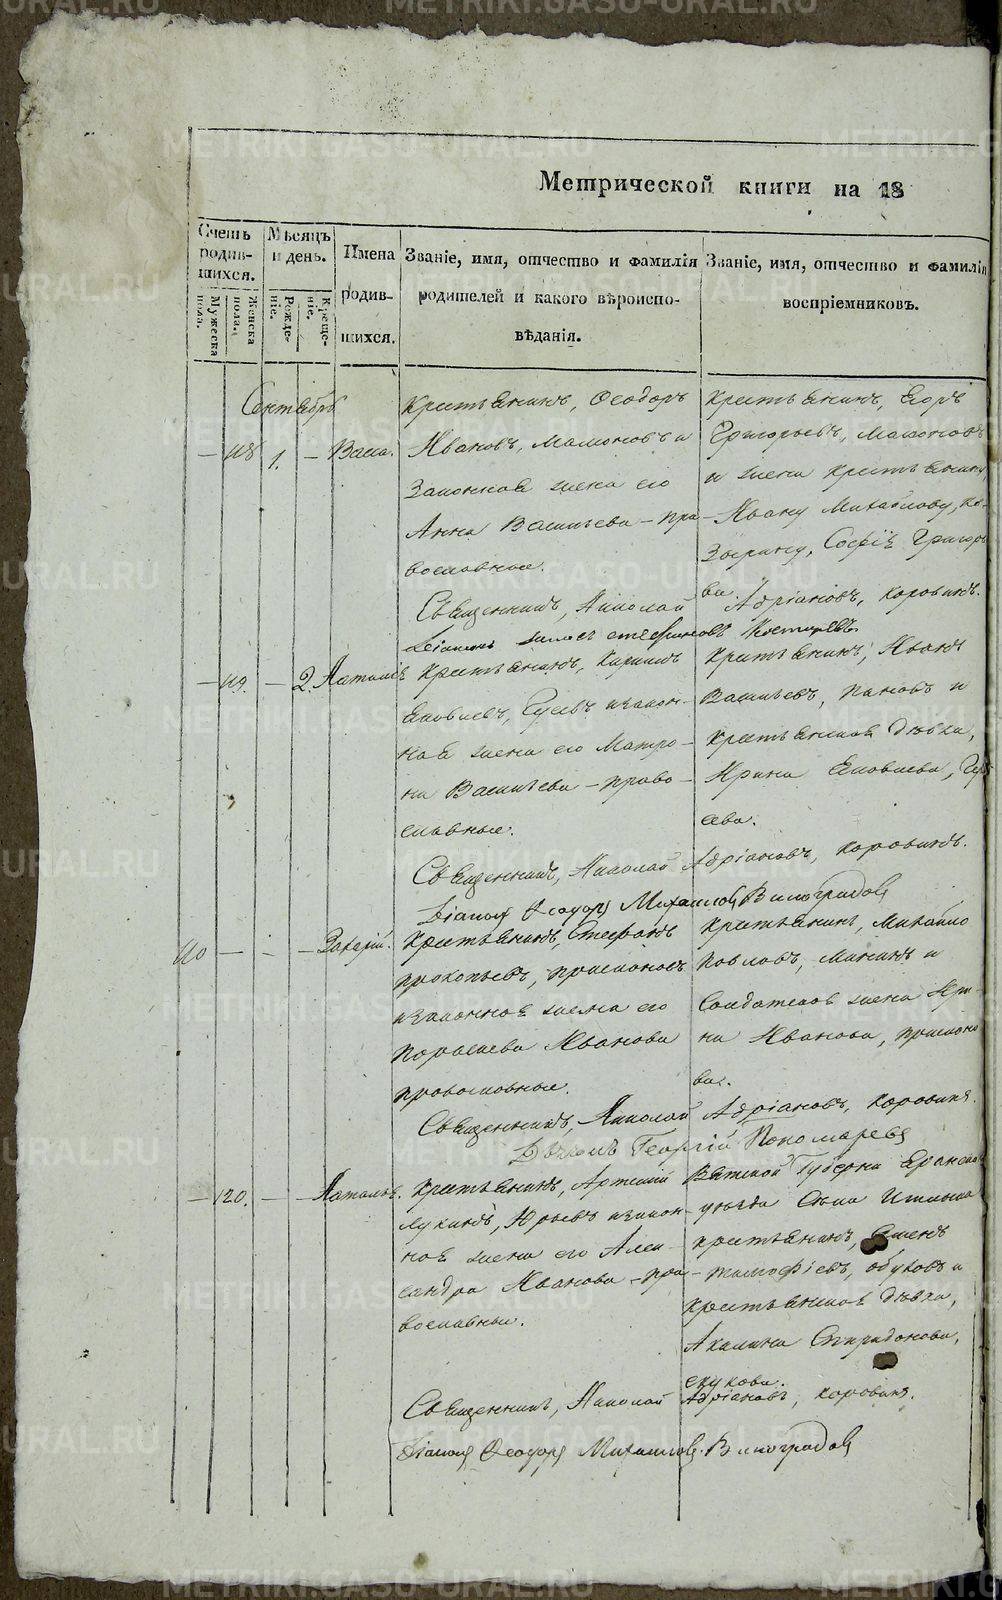 Метрической книги на 18
Счетъ родив-шихся.
Мужеска пола.
Женска пола.
Мѣсяцъ и день.
Рожде-ніе.
Креще-ніе.
Имена
родив-
шихся.
Званіе, имя, отчество и фамилія
родителей и какого вѣроиспо-
вѣданія.
Званіе, имя, отчество и фамилія
воспріемниковъ.
Сентябрь
118 1. Васса.
Крестьянинъ, Ѳеодоръ
Ивановъ, Мамоновъ и
Законная жена его
Анна Васильева – пра-
вославные.
Крестьянинъ, Егоръ
Григорьевъ, Мамоновъ
и жена крестьянина
Ивана Михайлова,
Софія Григорь
ва.
Священникъ, Николай Адріановъ, Коровинъ.
119. 2. Наталія
Крестьянинъ, Кириллъ
Яковлевъ, Гусевъ и закон-
ная жена его Матро-
на Васильева – право-
славные.
Крестьянинъ, Иванъ
Васильевъ, Пановъ и
крестьянская дѣвка,
Ирина Яковлева, Гу
сева.
Священникъ, Николай Адріановъ, Коровинъ.
Діаконъ Ѳеодоръ Михайловъ Виноградовъ
110 Захарій.
Крестьянинъ, Стефанъ
Прокопьевъ,
и законная жена его
Парасковья Иванова
православные.
Крестьянинъ, Михайло
Павловъ, Мининъ и
Солдатская жена Ири-
на Иванова,
ва.
Священникъ, Николай Адріановъ, Коровинъ.
Дьячокъ Георгій Пономаревъ
120. Наталья.
Крестьянинъ, Артемій
Лукинъ, Юрьевъ и закон-
ная жена его Алек-
сандра Иванова – пра-
вославные.
Вятской Губерніи Яранска
уѣзда Села
крестьянинъ, Семенъ
Тимофѣевъ, Обуховъ и
крестьянская дѣвка,
Акилина Спиридонова,
Священникъ, Николай Адріановъ, Коровинъ.
Діаконъ Ѳеодоръ Михайловъ Виноградовъ
METRIKI.GASO-URAL.RU